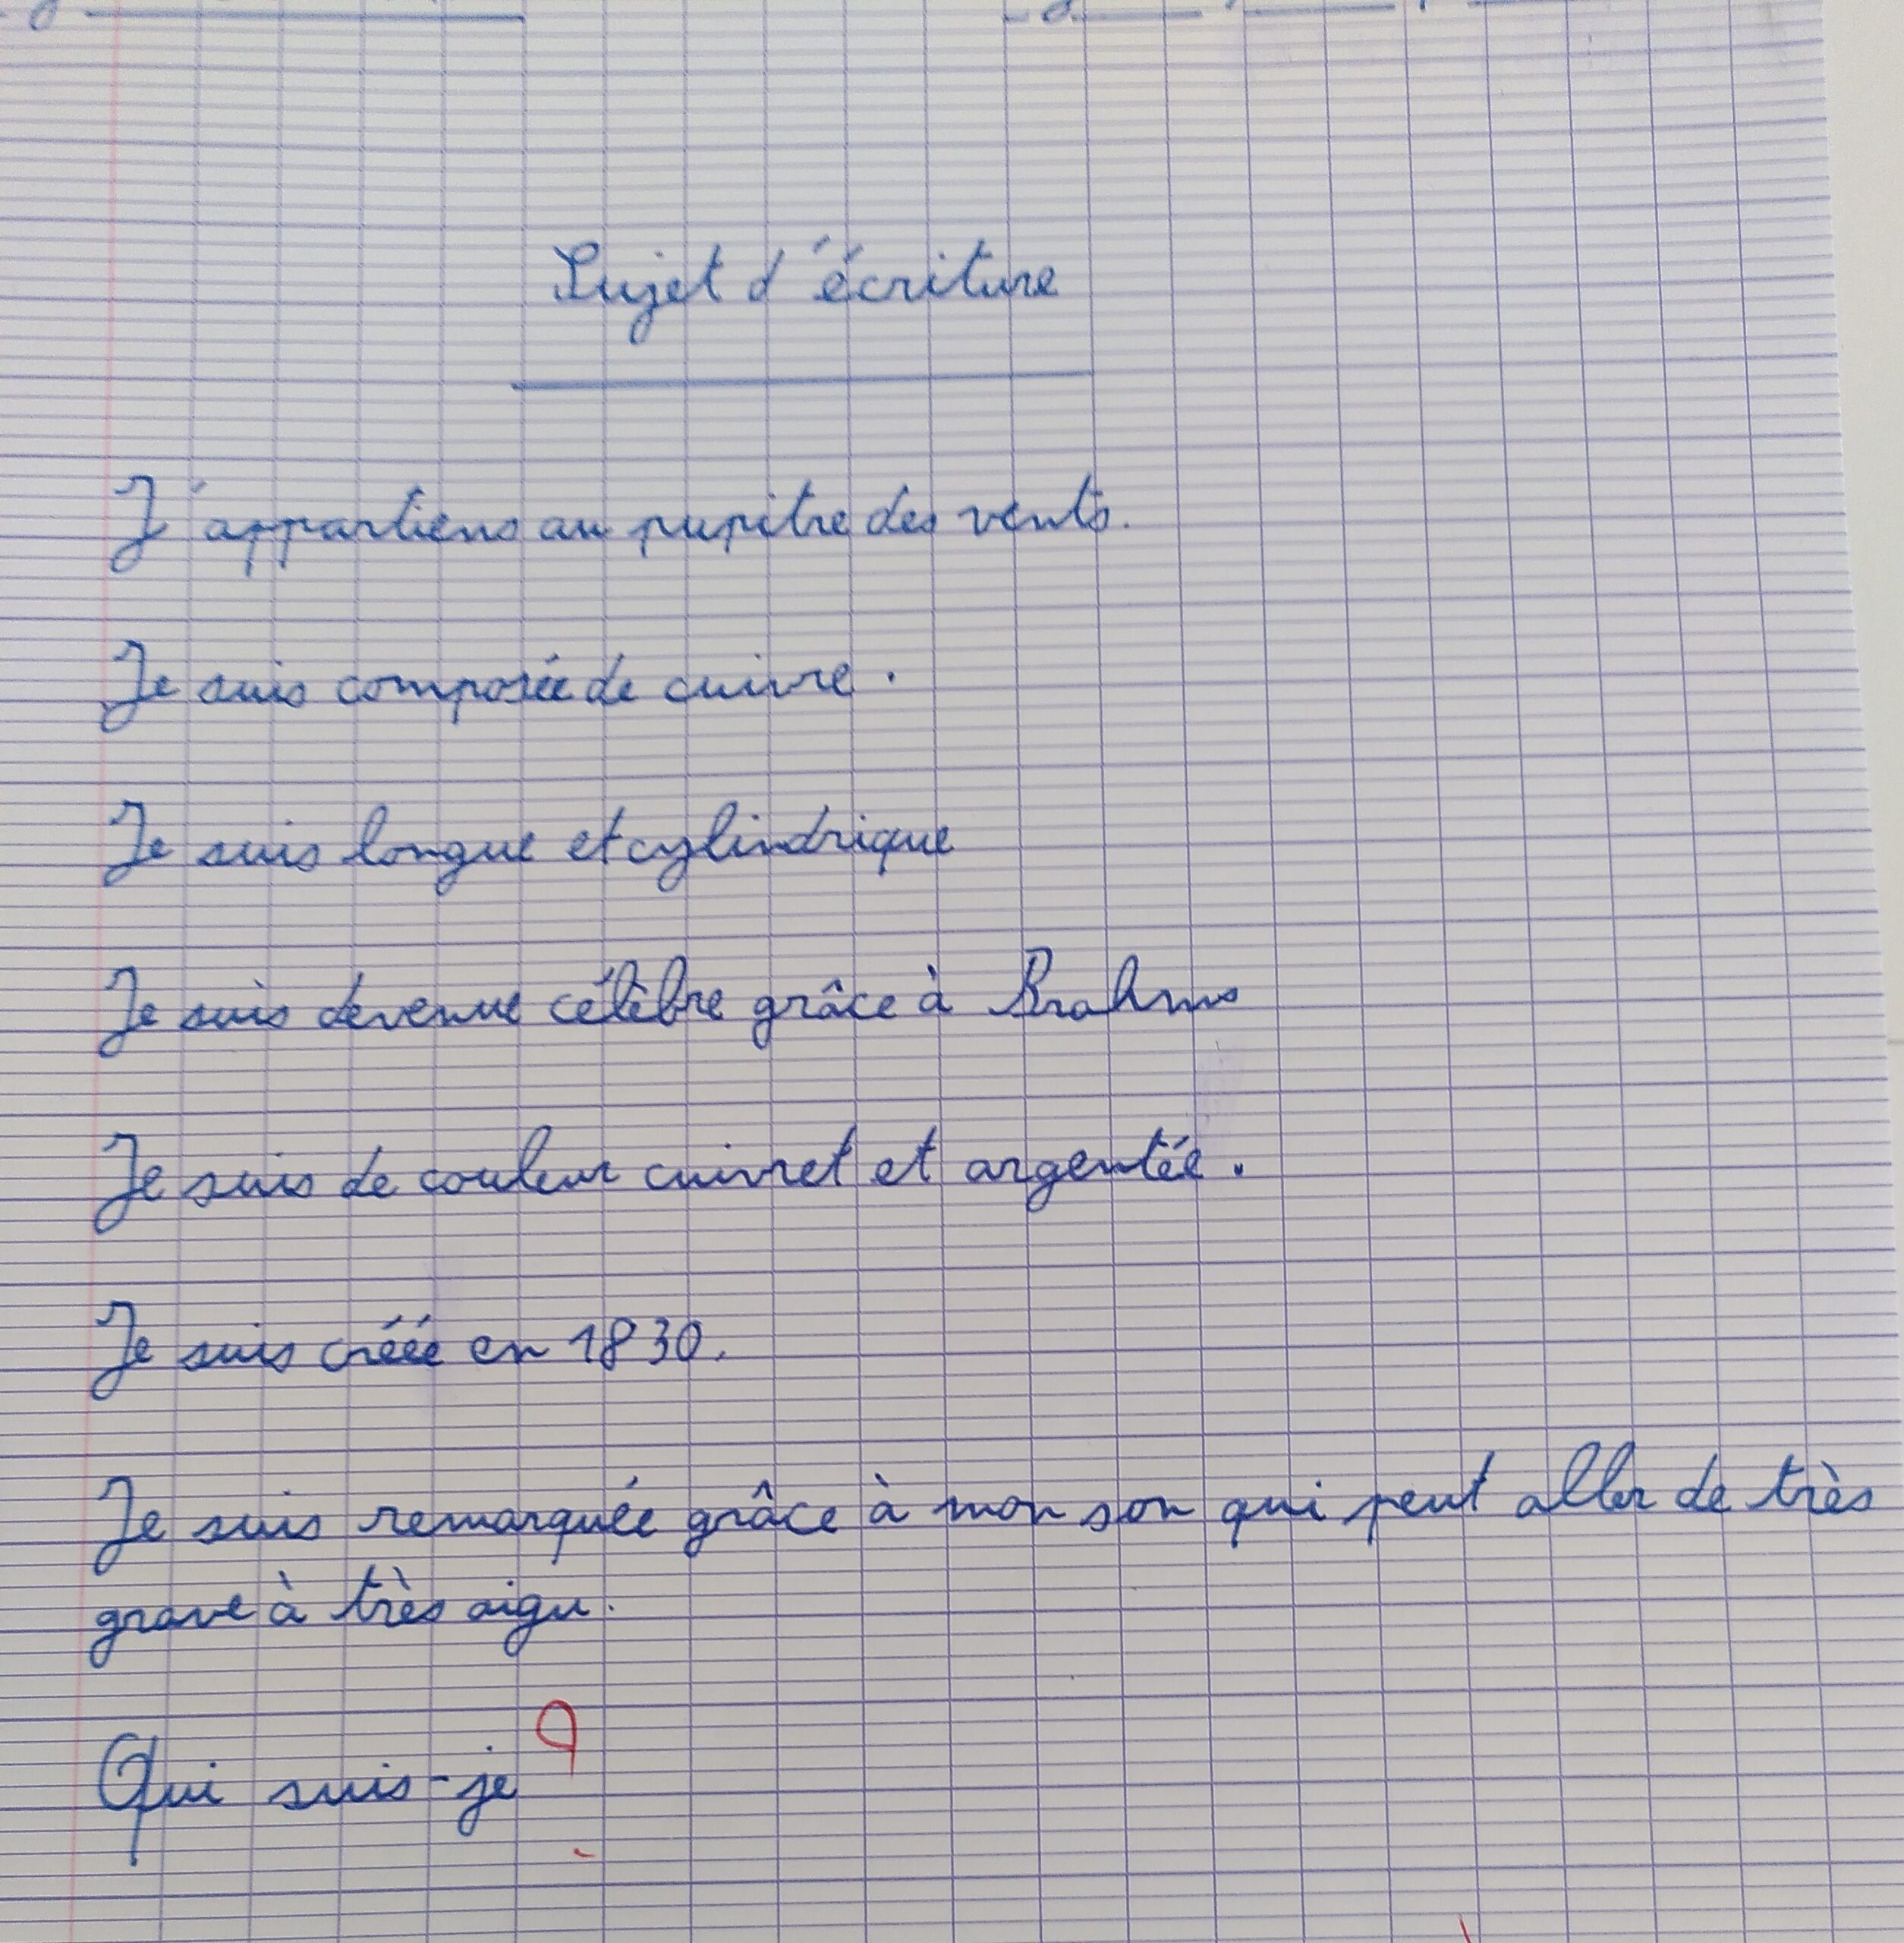 Sujet d'écriture
J'appartiens au pupitre des vents.
Je suis composée de cuivre.
Je suis longue et cylindrique
Je suis devenue célèbre grâce à Brahms
Je suis de couleur cuivret et argentée.
Je suis créée en 1830.
Je suis remarquée grâce à mon son qui peut aller de très
grave à très aigu.
Qui suis-je ?